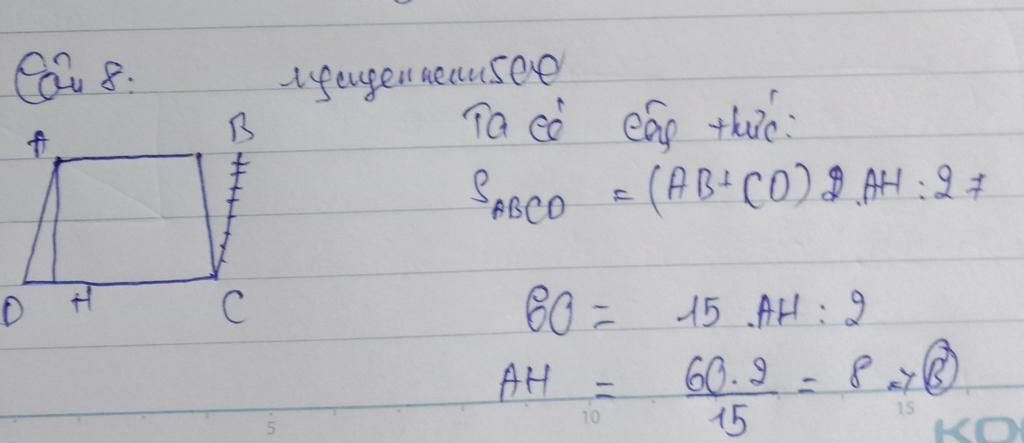 Câu 8:
A B
D H C
Ta có công thức:
S ABCD = (AB + CD) . AH : 2
60 = 15 . AH : 2
AH = 60 . 2 / 15 = 8 → B
5 10 15
KO